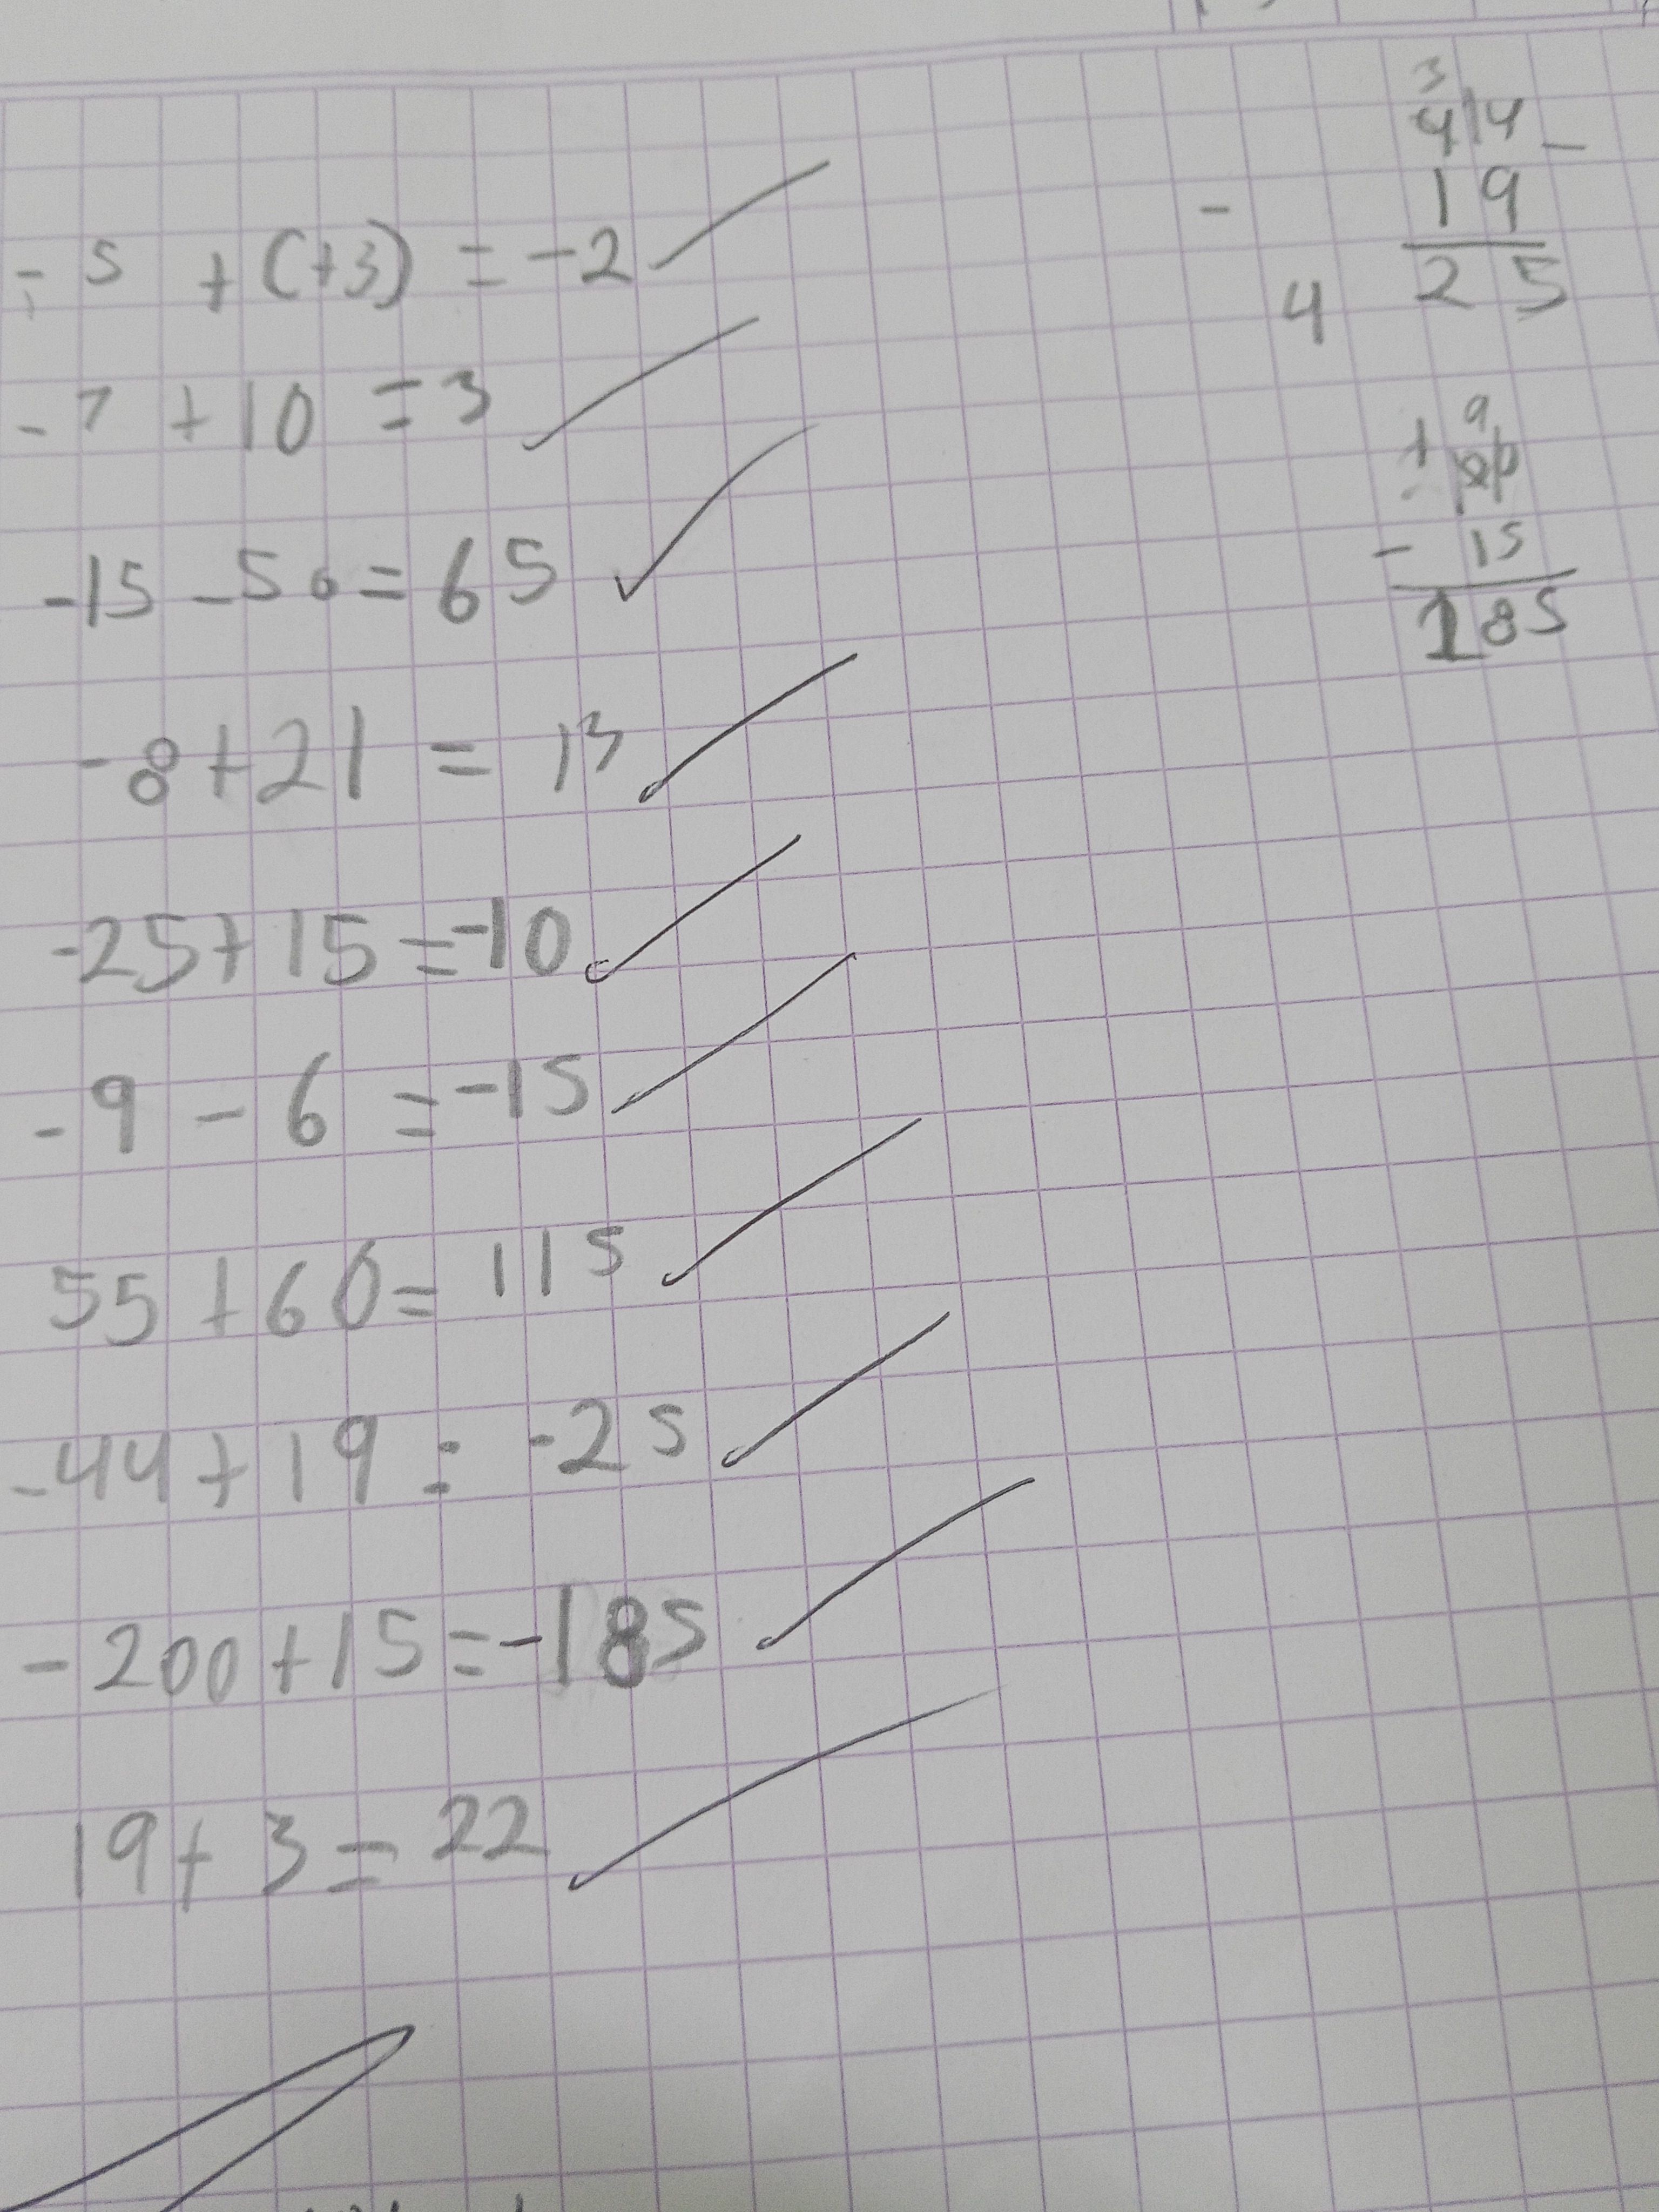 -5 + (+3) = -2
-7 + 10 = 3
-15 - 50 = 65
-8 + 21 = 13
-25 + 15 = -10
-9 - 6 = -15
55 + 60 = 115
-44 + 19 = -25
-200 + 15 = -185
19 + 3 = 22
3
4 14 -
- 19
4 25
9
+
- 15
185